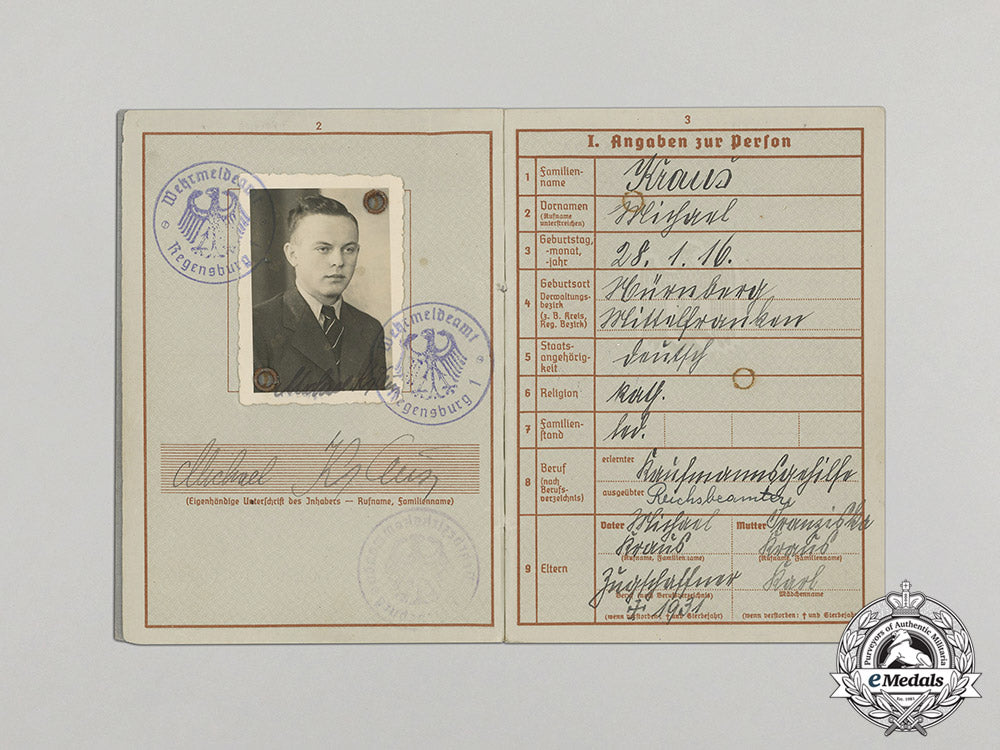 2
Wehrmeldeamt
Regensburg
Wehrmeldeamt
Regensburg 1
Michael Kraus
(Eigenhändige Unterschrift des Inhabers — Rufname, Familienname)
3
I. Angaben zur Person
1 Familien-
name
Kraus
2 Vornamen
(Rufname
unterstreichen)
Michael
3 Geburtstag,
-monat,
-jahr
28. 1. 16.
4 Geburtsort
Verwaltungs-
bezirk
(z. B. Kreis,
Reg. Bezirk)
Nürnberg
Mittelfranken
5 Staats-
angehörig-
keit
deutsch
6 Religion
kath.
7 Familien-
stand
led.
8 Beruf
(nach
Berufs-
verzeichnis)
erlernter Kaufmannsgehilfe
ausgeübter Reichsbeamter
9 Eltern
Vater Michael
Kraus
(Rufname, Familienname)
Zugschaffner
Beruf (nach Berufsverzeichnis)
† 1931
(wenn verstorben: † und Sterbejahr)
Mutter Franziska
Kraus
(Rufname, Familienname)
Karl
Mädchenname
(wenn verstorben: † und Sterbejahr)
Purveyors of Authentic Militaria
eMedals
Est. 1981